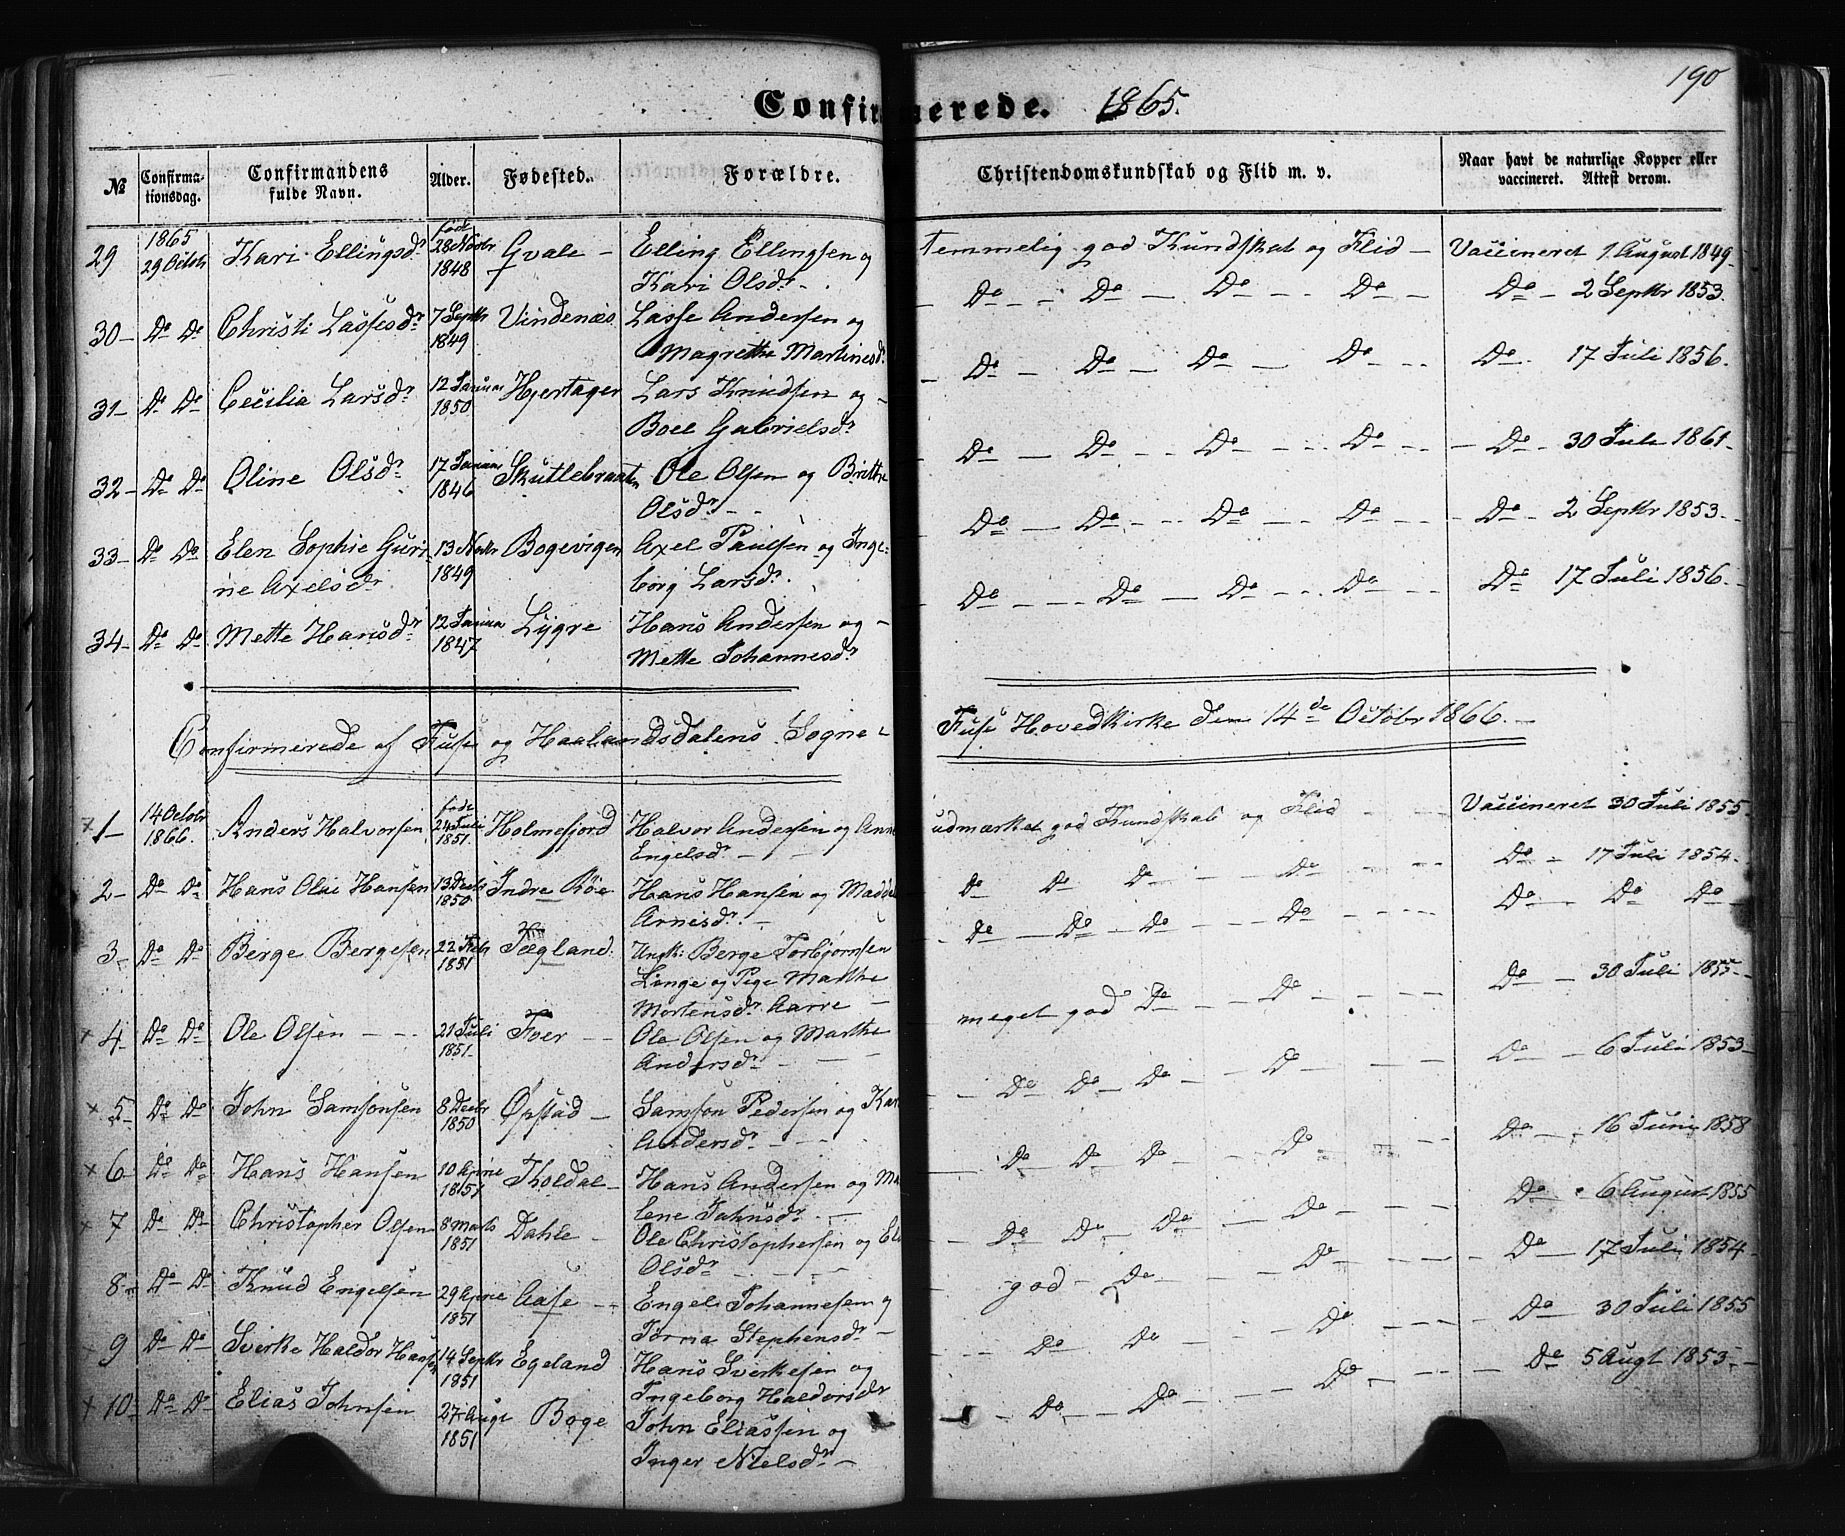 190
Confirmerede. 1865.
№ Confirmationsdag. Confirmandens fulde Navn. Alder. Fødested. Forældre. Christendomskundskab og Flid m. v. Naar havt de naturlige Kopper eller vaccineret. Attest derom.
29 1865 29 Octob Kari Ellingsdr. født 28 Novbr 1848 Gvale – Elling Ellingsen og Kari Olsdr. – Temmelig god Kundskab og Flid – Vaccineret 1 August 1849.
30 – Do Do Christi Lassesdr. 7 Septbr 1849 Vindenæs Lasse Andersen og Magrethe Martinesdr. – Do – Do – Do – Do – Do – 2 Septbr 1853.
31 – Do Do Cecilia Larsdr. 12 Januar 1850 Hjertager Lars Knudsen og – Boel Gabrielsdr. – Do – Do – Do – Do – Do – 17 Juli 1856.
32 – Do Do Oline Olsdr. 17 Januar 1846 Skutlebraaten Ole Olsen og Brithe Olsdr. – – Do – Do – Do – Do – Do – 30 Juli 1861.
33 – Do Do Elen Sophie Gurine Axelsdr. 13 Novbr 1849 Bogevigen Axel Paulsen og Ingeborg Larsdr. – Do – Do – Do – Do – Do – 2 Septbr 1853 –
34 – Do Do Mette Hansdr. 12 Januar 1847 Lygre Hans Andersen og – Mette Johannesdr. – Do – Do – Do – Do – Do 17 Juli 1856 –
Confirmerede af Fuse og Haalandsdalens Sogne – Fuse Hovedkirke den 14de Octobr 1866. –
1 – 14 Octobr 1866. Anders Halvorsen føde 24 Juli 1851. Holmefjord Halvor Andersen og Anne Engelsdr. – udmærket god Kundskab og Flid – Vaccineret 30 Juli 1855 –
2 – Do Do Hans Olai Hansen 13 Decbr 1850 Indre Røe Hans Hansen og Arnesdr. – Do Do Do – Do – Do – 17 Juli 1854 –
3 – Do Do Berge Bergesen 22 Febr 1851 Tægland. Ungk: Berge Torbjørnsen Linge og Pige Marthe Mortensdr. Aarre – Do – Do – Do – Do – Do – Do Do –
4 – Do Do Ole Olsen – – 21 Juli 1851 – Tver – – Ole Olsen og Marthe Andersdr. – – meget god Do – Do – Do – 30 Juli 1855 –
5 – Do Do John Samsonsen 8 Decbr 1850 Øpstad – Samson Pedersen og Kari Andersdr. – – Do – Do – Do – Do – Do – 6 Juli 1853 –
6 – Do Do Hans Hansen 10 Aprile 1851 Tholdal – Hans Andersen og lene Jahnsdr. – Do – Do – Do – Do – Do – 16 Juni 1858
7 – Do Do Christopher Olsen 8 Marts 1851 Dahle – Ole Christophersen og Olsdr. – Do – Do – Do – Do – Do – 6 August 1855
8 – Do – Do – Knud Engelsen 29 Aprile 1851 Aase – – Engel Johannesen og Stephensdr. – god – Do – Do – Do – 17 Juli 1854 –
9 Do – Do – Sverke Haldor Hansen 14 Septbr 1851 Egeland Hans Sverkesen og Ingeborg Haldorsdr – Do – Do – Do – Do – 30 Juli 1855
10 – Do – Do – Elias Johnsen 27 Augt 1851 Boge John Eliassen og Inger Nielsdr. – – Do – Do – Do – Do – 5 Augt 1853 –